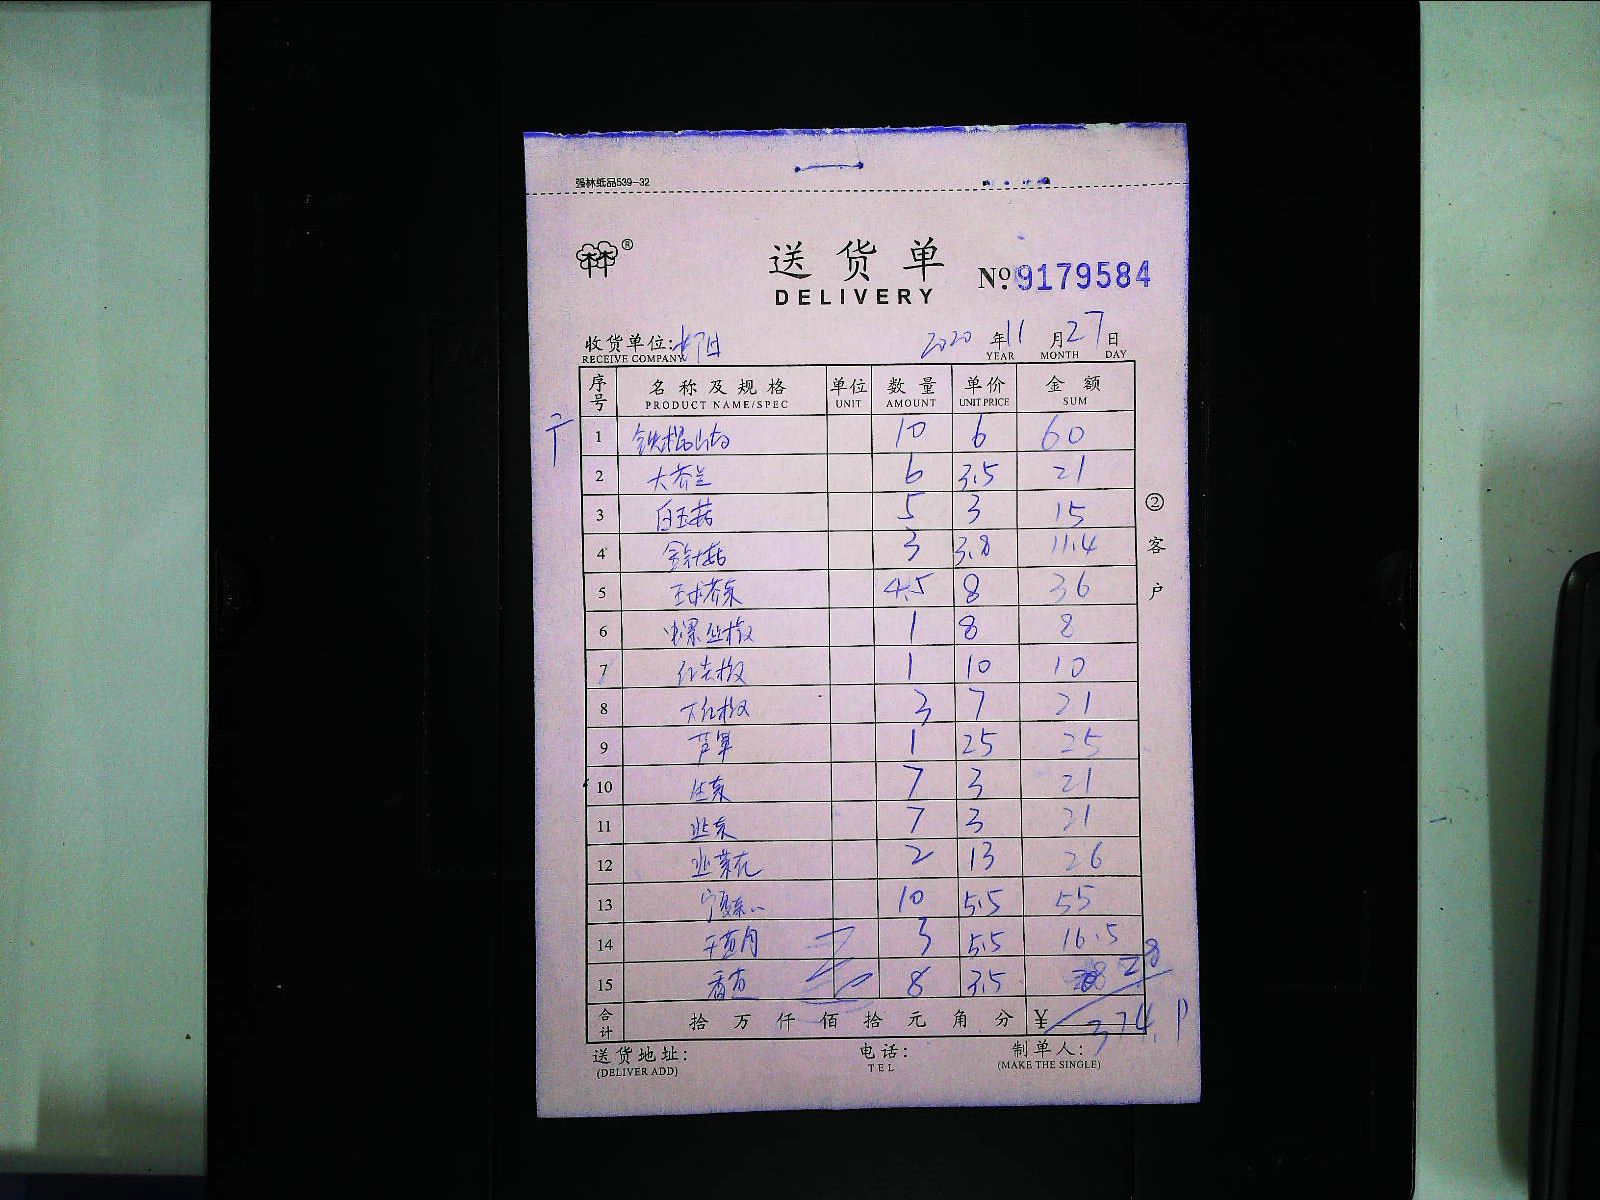 强林纸品539-32
®
送货单
DELIVERY
No. 9179584
收货单位: 2020 年 11 月 27 日
RECEIVE COMPANY YEAR MONTH DAY
序号 名称及规格 单位 数量 单价 金额
PRODUCT NAME/SPEC UNIT AMOUNT UNIT PRICE SUM
1 铁棍山药 10 6 60
2 大芥兰 6 3.5 21
3 白玉菇 5 3 15
4 金针菇 3 3.8 11.4
5 玉球芥菜 4.5 8 36
6 螺丝椒 1 8 8
7 红尖椒 1 10 10
8 大红椒 3 7 21
9 芦笋 1 25 25
10 生菜 7 3 21
11 韭菜 7 3 21
12 韭菜花 2 13 26
13 宁夏菜心 10 5.5 55
14 3 5.5 16.5
15 香 8 3.5 28
合计 拾 万 仟 佰 拾 元 角 分 ¥ 374.9
送货地址: 电话: 制单人:
(DELIVER ADD) TEL (MAKE THE SINGLE)
②客户